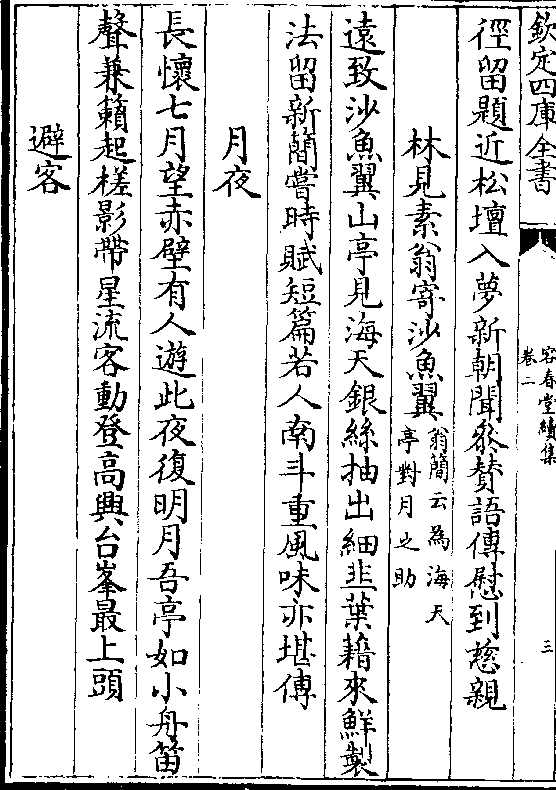 欽定四庫全書
容春堂續集
卷二
三
徑留題近松壇入夢新朝聞參贊語傳慰到慈親
林見素翁寄沙魚翼翁簡云為海天亭對月之助
遠致沙魚翼山亭見海天銀絲抽出細韭葉藉來鮮製
法留新簡嘗時賦短篇若人南斗重風味亦堪傳
月夜
長懷七月望赤壁有人遊此夜復明月吾亭如小舟笛
聲兼籟起槎影帶星流客動登高興台峯最上頭
避客